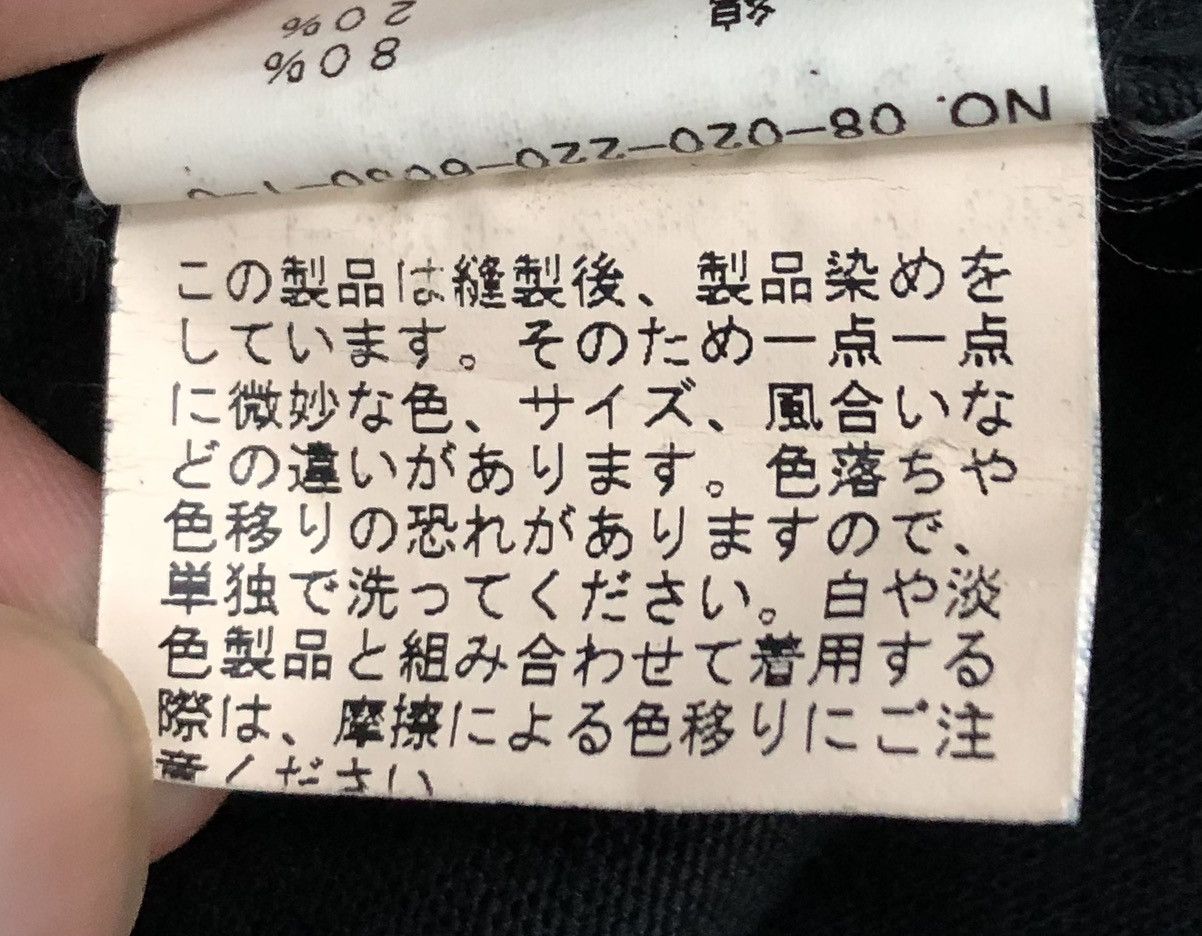 20%
80%
NO. 08-020-220-6030-1-0
この製品は縫製後、製品染めを
しています。そのため一点一点
に微妙な色、サイズ、風合いな
どの違いがあります。色落ちや
色移りの恐れがありますので、
単独で洗ってください。白や淡
色製品と組み合わせて着用する
際は、摩擦による色移りにご注
意ください